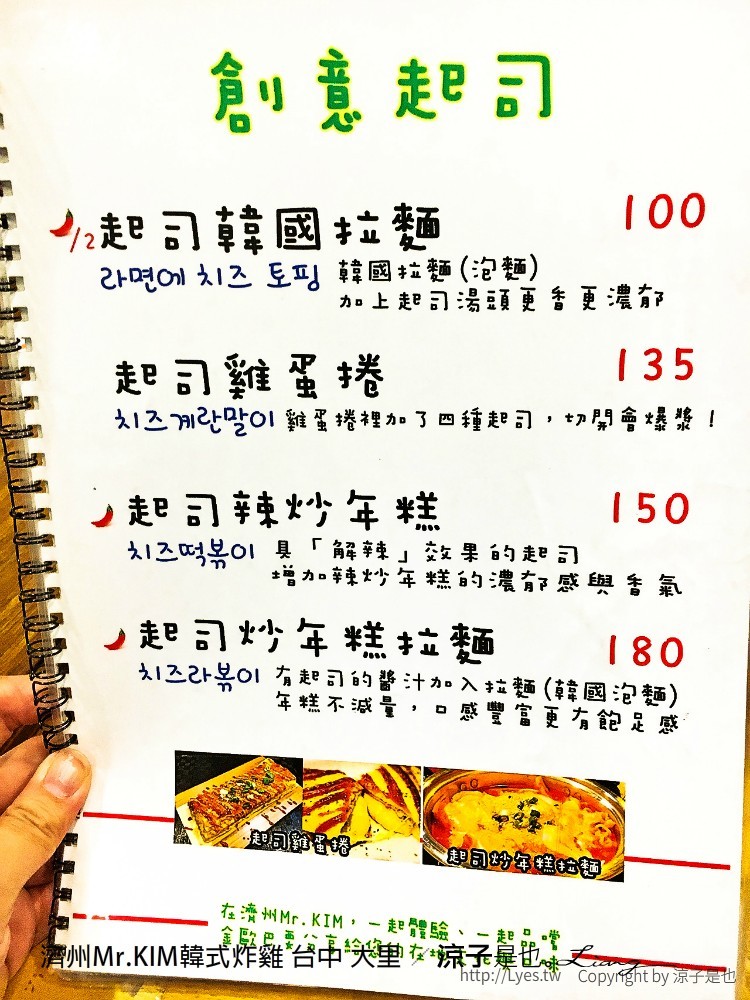 創意起司
1/2 起司韓國拉麵 100
라면에 치즈 토핑 韓國拉麵(泡麵)
加上起司湯頭更香更濃郁
起司雞蛋捲 135
치즈계란말이 雞蛋捲裡加了四種起司，切開會爆漿！
起司辣炒年糕 150
치즈떡볶이 具「解辣」效果的起司
增加辣炒年糕的濃郁感與香氣
起司炒年糕拉麵 180
치즈라볶이 有起司的醬汁加入拉麵(韓國泡麵)
年糕不減量，口感豐富更有飽足感
起司雞蛋捲
起司炒年糕拉麵
在濟州Mr.KIM，一起體驗、一起品嚐
金歐巴要分享給您的在地
濟州Mr.KIM韓式炸雞 台中 大里 / 涼子是也 Liang
http://Lyes.tw Copyright by 涼子是也